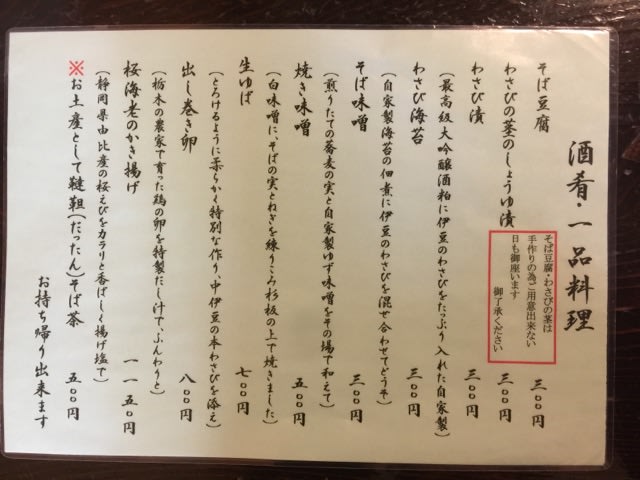 酒肴・一品料理
そば豆腐 三〇〇円
わさびの茎のしょうゆ漬 三〇〇円
そば豆腐・わさびの茎は
手作りの為ご用意出来ない
日も御座います
御了承ください
わさび漬 三〇〇円
（最高級大吟醸酒粕に伊豆のわさびをたっぷり入れた自家製）
わさび海苔 三〇〇円
（自家製海苔の佃煮に伊豆のわさびを混ぜ合わせてどうぞ）
そば味噌 三〇〇円
（煎りたての蕎麦の実と自家製ゆず味噌をその場で和えて）
焼き味噌 五〇〇円
（白味噌に、そばの実とねぎを練りこみ杉板の上で焼きました）
生ゆば 七〇〇円
（とろけるように柔らかく特別な作り、中伊豆の本わさびを添え）
出し巻き卵 八〇〇円
（栃木の農家で育った鶏の卵を特製だし汁で、ふんわりと）
桜海老のかき揚げ 一一五〇円
（静岡県由比産の桜えびをカラリと香ばしく揚げ塩で）
※お土産として韃靼（だったん）そば茶 五〇〇円
お持ち帰り出来ます